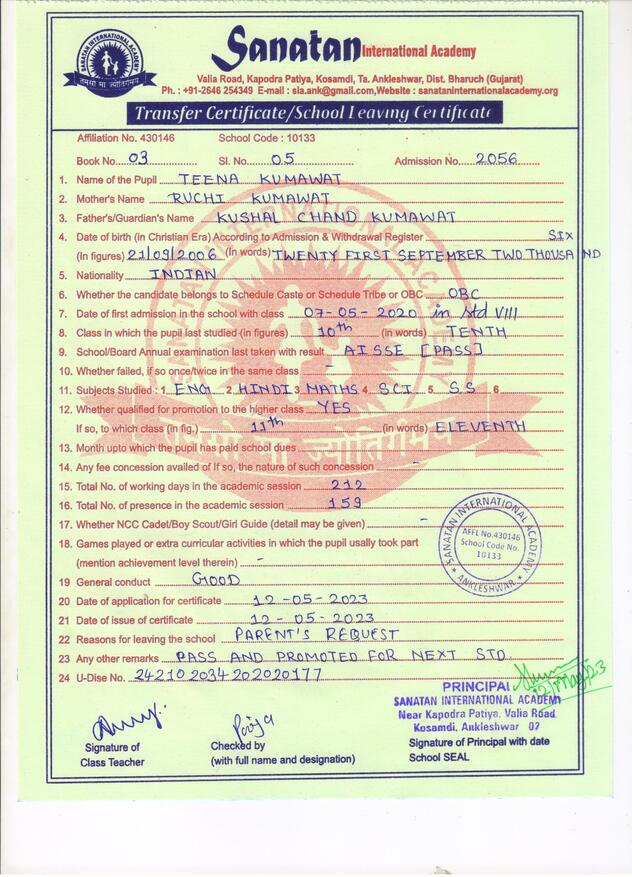 SANATAN INTERNATIONAL ACADEMY
तमसो मा ज्योतिर्गमय
Sanatan International Academy
Valia Road, Kapodra Patiya, Kosamdi, Ta. Ankleshwar, Dist. Bharuch (Gujarat)
Ph. : +91-2646 254349 E-mail : sia.ank@gmail.com,Website : sanataninternationalacademy.org
Transfer Certificate/School Leaving Certificate
Affiliation No. 430146 School Code : 10133
Book No. 03 Sl. No. 05 Admission No. 2056
1. Name of the Pupil TEENA KUMAWAT
2. Mother's Name RUCHI KUMAWAT
3. Father's/Guardian's Name KUSHAL CHAND KUMAWAT
4. Date of birth (in Christian Era) According to Admission & Withdrawal Register SIX
(In figures) 21/09/2006 (In words) TWENTY FIRST SEPTEMBER TWO THOUSAND
5. Nationality INDIAN
6. Whether the candidate belongs to Schedule Caste or Schedule Tribe or OBC OBC
7. Date of first admission in the school with class 07-05-2020 in std VIII
8. Class in which the pupil last studied (in figures) 10th (in words) TENTH
9. School/Board Annual examination last taken with result AISSE [PASS]
10. Whether failed, if so once/twice in the same class -
11. Subjects Studied : 1 ENG. 2 HINDI 3 MATHS 4 SCI 5. S.S 6
12. Whether qualified for promotion to the higher class YES
If so, to which class (in fig.) 11th (in words) ELEVENTH
13. Month upto which the pupil has paid school dues
14. Any fee concession availed of If so, the nature of such concession -
15. Total No. of working days in the academic session 212
16. Total No. of presence in the academic session 159
17. Whether NCC Cadet/Boy Scout/Girl Guide (detail may be given) -
18. Games played or extra curricular activities in which the pupil usally took part
(mention achievement level therein) -
19 General conduct GOOD
20 Date of application for certificate 12-05-2023
21 Date of issue of certificate 12-05-2023
22 Reasons for leaving the school PARENT'S REQUEST
23 Any other remarks PASS AND PROMOTED FOR NEXT STD.
24 U-Dise No. 242102034202020177
SANATAN INTERNATIONAL ACADEMY
AFFL No.430146
School Code No.
10133
ANKLESHWAR
12/May/23
PRINCIPAL
SANATAN INTERNATIONAL ACADEMY
Near Kapodra Patiya, Valia Road
Kosamdi, Ankleshwar 02
Pooja
Signature of Checked by Signature of Principal with date
Class Teacher (with full name and designation) School SEAL